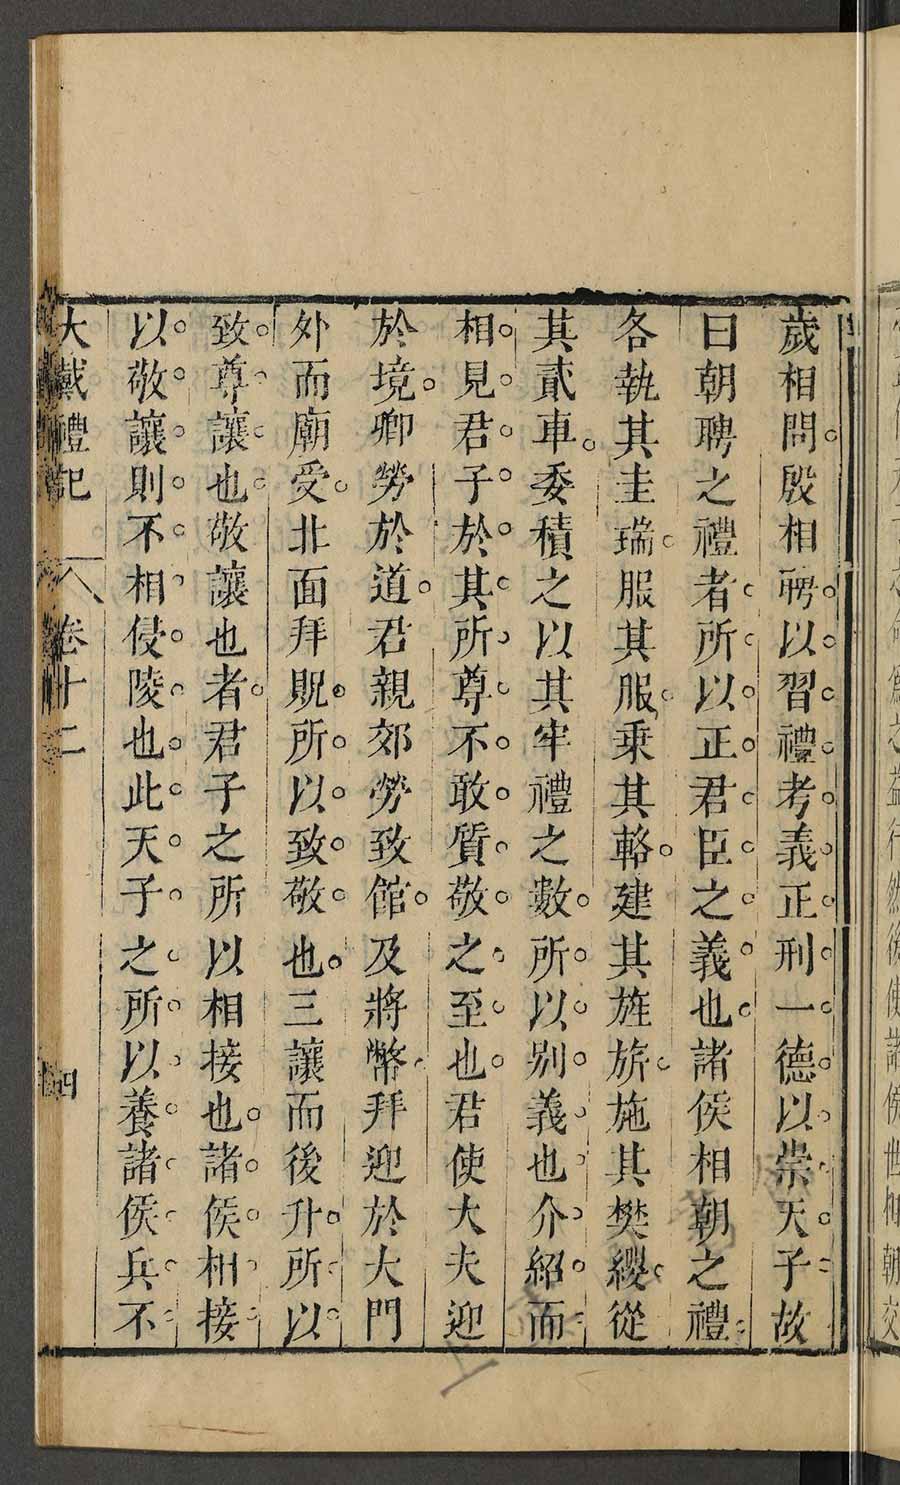 歲相問殷相聘以習禮考義正刑一德以崇天子故
曰朝聘之禮者所以正君臣之義也諸侯相朝之禮
各執其圭瑞服其服乗其輅建其旌旂施其樊纓從
其貳車委積之以其牢禮之數所以别義也介紹而
相見君子於其所尊不敢質敬之至也君使大夫迎
於境卿勞於道君親郊勞致館及將幣拜迎於大門
外而廟受北面拜貺所以致敬也三讓而後升所以
致尊讓也敬讓也者君子之所以相接也諸侯相接
以敬讓則不相侵陵也此天子之所以養諸侯兵不
大戴禮記 卷十二 四